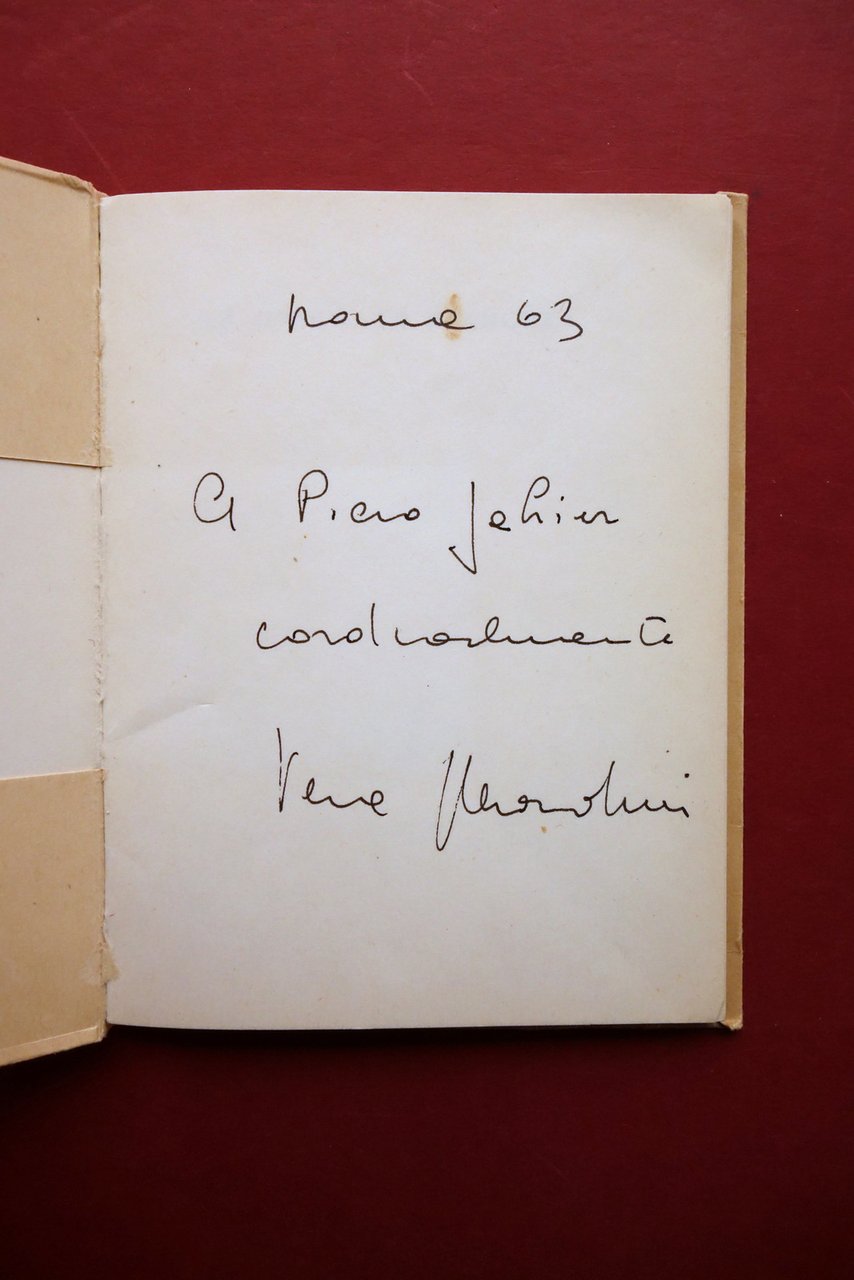 Roma 63
A Piero Jahier
cordialmente
Vera